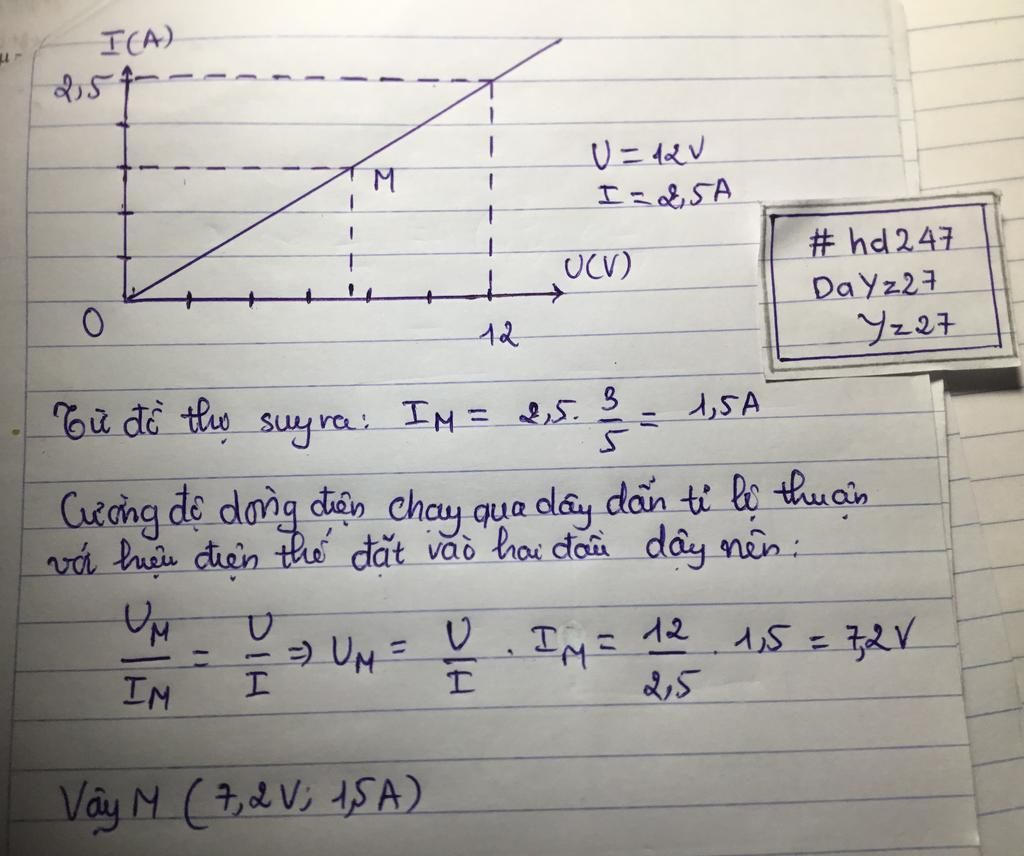 I(A)
2,5
M
U = 12V
I = 2,5A
U(V)
O
12
# hd247
DaYz27
Yz27
Từ đồ thị suy ra: I_M = 2,5 . 3/5 = 1,5A
Cường độ dòng điện chạy qua dây dẫn tỉ lệ thuận
với hiệu điện thế đặt vào hai đầu dây nên:
U_M/I_M = U/I => U_M = U/I . I_M = 12/2,5 . 1,5 = 7,2V
Vậy M (7,2V; 1,5A)